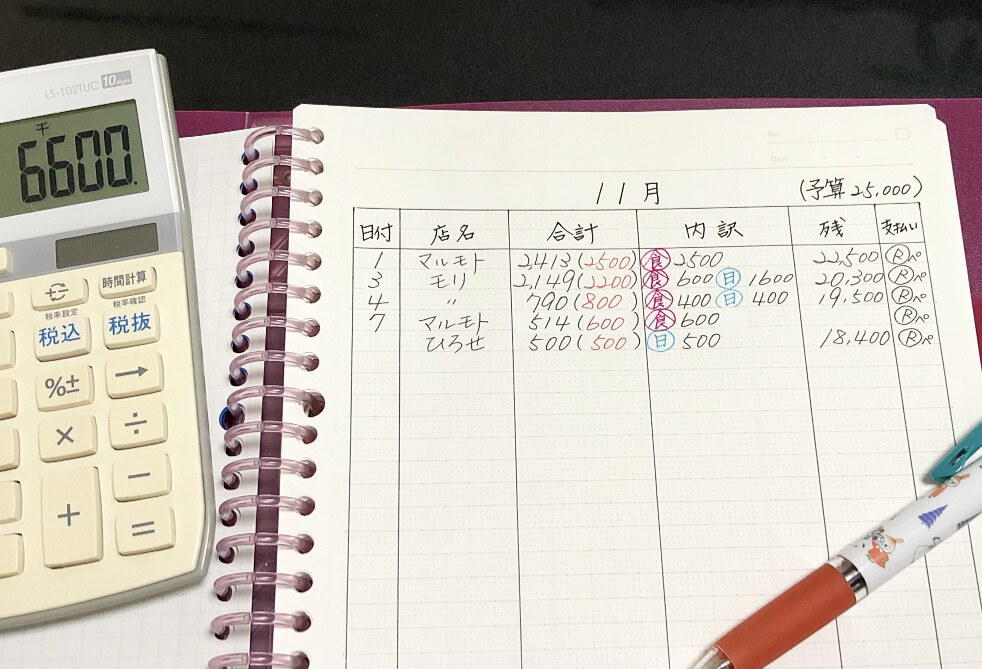 LS-102TUC 10digits
千
6600.
時間計算
税率設定
税率確認
税込
税抜
%±
→
×
÷
+
−
=
No.
Date
11月
(予算25,000)
日付 店名 合計 内訳 残 支払い
1 マルモト 2,413(2500) 食 2500 22,500 Rペ
3 モリ 2,149(2200) 食 600 日 1600 20,300 Rペ
4 〃 790(800) 食 400 日 400 19,500 Rペ
7 マルモト 514(600) 食 600 Rペ
ひろせ 500(500) 日 500 18,400 Rペ